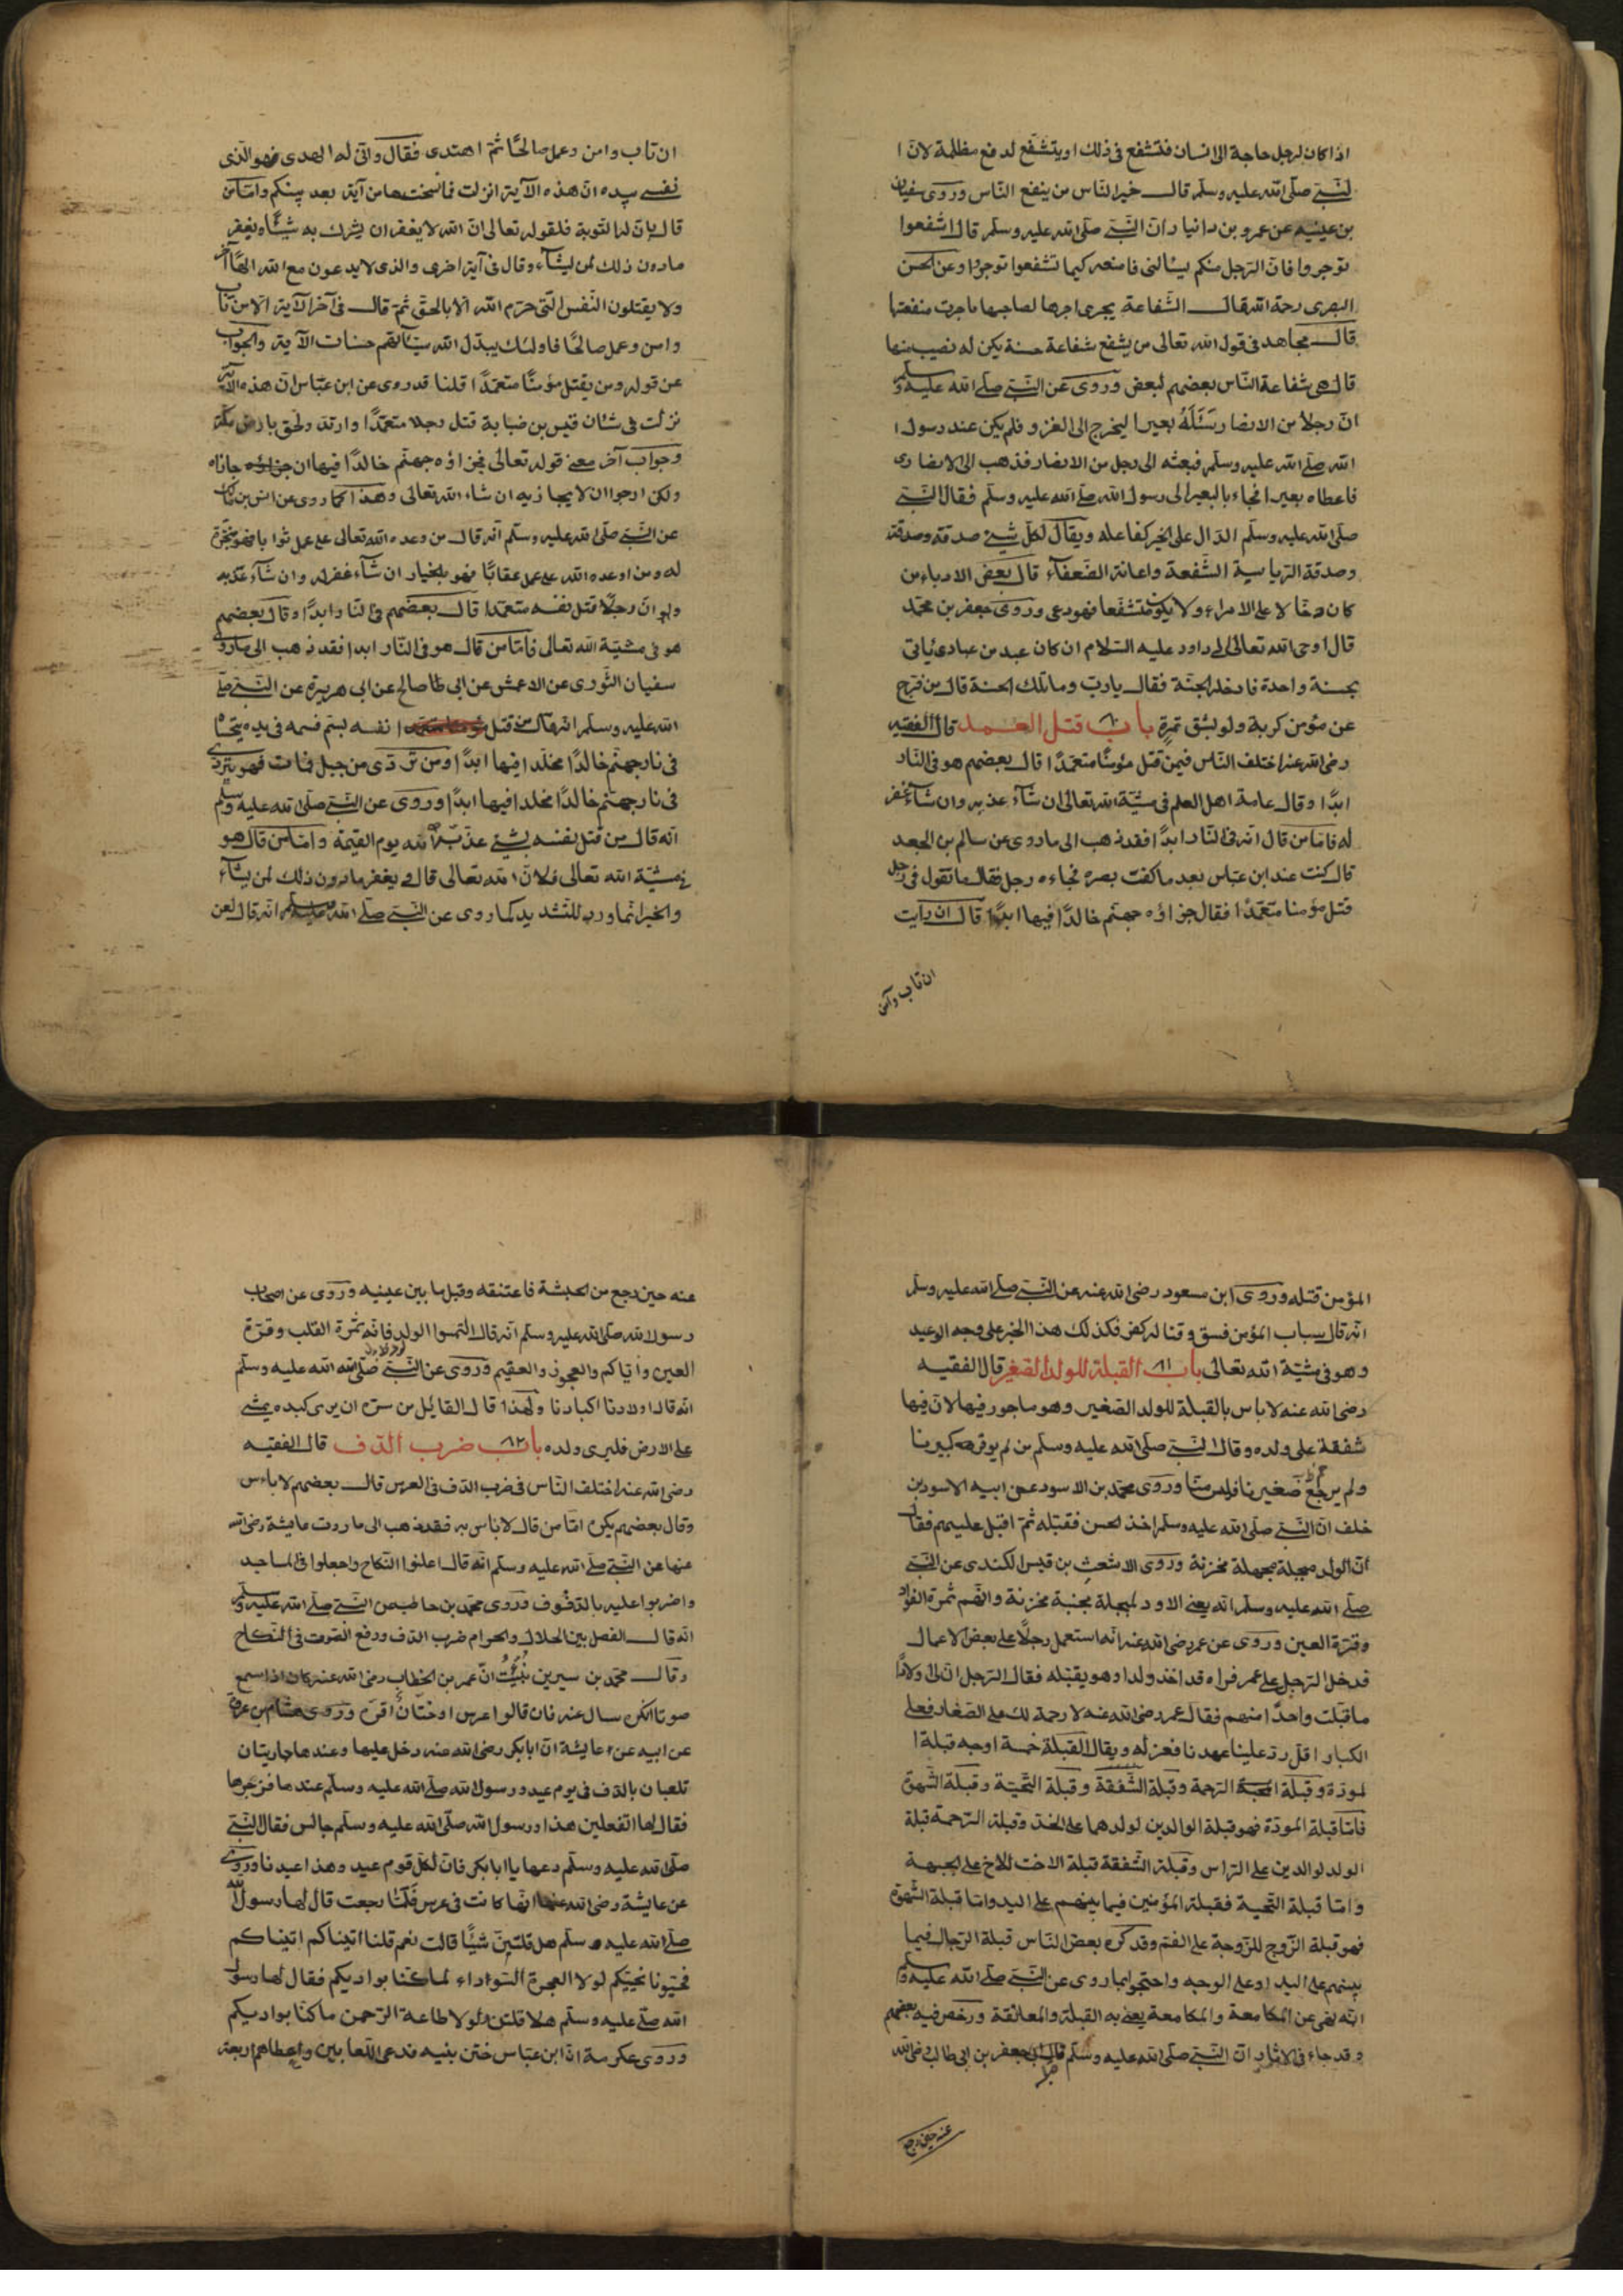 اذا كان لرجل حاجة الى انسان فتشفع فى ذلك او يتشفع لدفع مظلمة لان ا
لنبى صلى الله عليه وسلم قال خير الناس من ينفع الناس وروى سفيان
بن عيينه عن عمرو بن دانيار ان النبى صلى الله عليه وسلم قال اشفعوا
توجروا فان الرجل منكم ليسالنى فامنعه كيما تشفعوا توجروا وعن الحسن
البصرى رحمة الله قال الشفاعة يجرى اجرها لصاحبها ماجرت منفعتها
قال مجاهد فى قول الله تعالى من يشفع شفاعة حسنة يكن له نصيب منها
قال هى شفاعة الناس بعضهم لبعض وروى عن النبى صلى الله عليه وسلم
ان رجلا من الانصار سئله بعيرا ليخرج الى الغزو فلم يكن عند رسول ا
الله صلى الله عليه وسلم فبعثه الى رجل من الانصار فذهب الى الانصارى
فاعطاه بعيرا فجاء بالبعير الى رسول الله صلى الله عليه وسلم فقال النبى
صلى الله عليه وسلم الدال على الخير كفاعله ويقال لكل شيئ صدقة وصدقة
وصدقة الرياسية الشفعة واعانة الضعفاء قال بعض الادباء من
كان دخالا على الامراء ولا يكون متشفعا فهو دعى وروى جعفر بن محمد
قال اوحى الله تعالى الى داود عليه السلام ان كان عبد من عبادى ياتى
بحسنة واحدة فادخله الجنة فقال يارب وما تلك الحسنة قال من فرج
عن مؤمن كربة ولو بشق تمرة باب ٦٠ قتل العمد قال الفقيه
رضى الله عنه اختلف الناس فيمن قتل مؤمنا متعمدا قال بعضهم هو فى النار
ابدا وقال عامة اهل العلم فى مشية الله تعالى ان شاء عذبه وان شاء غفر
له فامّا من قال انه فى النار ابدا فقد ذهب الى ما روى عن سالم بن الجعد
قال كنت عند ابن عباس بعد ما كفت بصره فجاءه رجل فقال ما تقول فى رجل
قتل مؤمنا متعمدا فقال جزاؤه جهنم خالدا فيها ابدا قال ان رايت
ان تاب وآمن
ان تاب وامن وعمل صالحا ثم اهتدى فقال وانى له الهدى فهو الذى
نفسى بيده ان هذه الآية انزلت فما نسختها من آية بعد بينكم وامّا من
قال بان له التوبة فلقوله تعالى ان الله لا يغفر ان يشرك به شيئا ويغفر
مادون ذلك لمن يشاء وقال فى آية اخرى والذى لا يدعون مع الله الها آخر
ولا يقتلون النفس التى حرم الله الا بالحق ثم قال فى آخر الآية الا من تاب
وامن وعمل صالحا فاولئك يبدل الله سيئاتهم حسنات الآية والجواب
عن قوله ومن يقتل مؤمنا متعمدا قلنا قد روى عن ابن عباس ان هذه الآية
نزلت فى شان قيس بن ضبابة قتل رجلا متعمدا وارتد ولحق بارض مكة
وجواب آخر معنى قوله تعالى فجزاؤه جهنم خالدا فيها ان جزاؤه جازاه
ولكن ارجوا ان لا يجازيه ان شاء الله تعالى وهذا كما روى عن انس بن مالك
عن النبى صلى الله عليه وسلم انه قال من وعده الله تعالى على عمل ثوابا فهو منجزة
له ومن اوعده الله على عمل عقابا فهو بالخيار ان شاء غفر له وان شاء عذبه
ولو ان رجلا قتل نفسه متعمدا قال بعضهم فى النار ابدا وقال بعضهم
هو فى مشية الله تعالى فامّا من قال هو فى النار ابدا فقد ذهب الى ما روى
سفيان الثورى عن الاعمش عن ابى صالح عن ابى هريرة عن النبى صلى
الله عليه وسلم انه قال من قتل نفسه بسم فسمه فى يده يتحسا
فى نار جهنم خالدا مخلدا فيها ابدا ومن تردى من جبل فمات فهو يتردى
فى نار جهنم خالدا مخلدا فيها ابدا وروى عن النبى صلى الله عليه وسلم
انه قال من قتل نفسه بشيئ عذب به الله يوم القيمة وامّا من قال هو
فى مشية الله تعالى فلان الله تعالى قال ويغفر مادون ذلك لمن يشاء
والخبر انما ورد للتشديد كما روى عن النبى صلى الله عليه وسلم انه قال لعن
المؤمن قتله وروى ابن مسعود رضى الله عنه عن النبى صلى الله عليه وسلم
انه قال سباب المؤمن فسق وقتاله كفر فكذلك هذا الخبر على وجه الوعيد
وهو فى مشية الله تعالى باب ٦١ القبلة للولد الصغير قال الفقيه
رضى الله عنه لا باس بالقبلة للولد الصغير وهو ماجور فيها لان فيها
شفقة على ولده وقال النبى صلى الله عليه وسلم من لم يوقر كبيرنا
ولم يرحم صغيرنا فليس منا وروى محمد بن الاسود عن ابيه الاسود بن
خلف ان النبى صلى الله عليه وسلم اخذ الحسن فقبله ثم اقبل عليهم فقال
ان الولد مبخلة مجهلة محزنة وروى الاشعث بن قيس الكندى عن النبى
صلى الله عليه وسلم انه يعنى الاود لمبخلة مجنبة محزنة وانهم ثمرة الفؤاد
وقرة العين وروى عن عمر رضى الله عنه انه استعمل رجلا على بعض الاعمال
فدخل الرجل على عمر فراه قد اخذ ولدا وهو يقبله فقال الرجل ان لى ولادا
ما قبلت واحدا منهم فقال عمر رضى الله عنه لا رحمة لك على الصغار فعلى
الكبار اقل رد علينا عهدنا فعزله ويقال القبلة خمسة اوجه قبلة ا
لمودة وقبلة الرحمة وقبلة الشفقة وقبلة التحية وقبلة الشهوة
فامّا قبلة المودة فهو قبلة الوالدين لولدهما على الخد وقبلة الرحمة قبلة
الولد لوالدين على الراس وقبلة الشفقة قبلة الاخت للاخ على الجبهة
وامّا قبلة التحية فقبلة المؤمنين فيما بينهم على اليد وامّا قبلة الشهوة
فهو قبلة الزوج للزوجة على الفم وقد كره بعض الناس قبلة الرجال فيما
بينهم على اليد او على الوجه واحتجوا بما روى عن النبى صلى الله عليه وسلم
انه نهى عن المكامعة والمكامعة يعنى به القبلة والمعانقة ورخص فيه بعضهم
وقد جاء فى الاثار ان النبى صلى الله عليه وسلم قال جعفر بن ابى طالب رضى الله
عنه حين رجع
عنه حين رجع من الحبشة فاعتنقه وقبل ما بين عينيه وروى عن اصحاب
رسول الله صلى الله عليه وسلم انه قال التمسوا الولد فانه ثمرة القلب وقرة
العين واياكم والعجوز والعقيم وروى عن النبى صلى الله عليه وسلم
انه قال اولادنا اكبادنا ولهذا قال القائل من سره ان يرى كبده يمشى
على الارض فليرى ولده باب ٦٢ ضرب الدف قال الفقيه
رضى الله عنه اختلف الناس فى ضرب الدف فى العرس قال بعضهم لا باءس
وقال بعضهم يكره امّا من قال لا باس به فقد ذهب الى ما روت عايشة رضى الله
عنها عن النبى صلى الله عليه وسلم انه قال اعلنوا النكاح واجعلوا فى المساجد
واضربوا عليه بالدفوف وروى محمد بن حاطب عن النبى صلى الله عليه وسلم
انه قال الفصل بين الحلال والحرام ضرب الدف ورفع الصوت فى النكاح
وقال محمد بن سيرين نبئت ان عمر بن الخطاب رضى الله عنه كان اذا سمع
صوتا انكره سال عنه فان قالوا عرس او ختان اقره وروى هشام بن عروة
عن ابيه عن عايشة ان ابا بكر رضى الله عنه دخل عليها وعندها جاريتان
تلعبان بالدف فى يوم عيد ورسول الله صلى الله عليه وسلم عندها فزجرها
فقال لها اتفعلين هذا ورسول الله صلى الله عليه وسلم جالس فقال النبى
صلى الله عليه وسلم دعها يا ابا بكر فان لكل قوم عيد وهذا عيدنا وروى
عن عايشة رضى الله عنها انها كانت فى عرس فلما رجعت قال لها رسول الله
صلى الله عليه وسلم هل قلتين شيئا قالت نعم قلنا اتيناكم اتيناكم
فحيونا نحييكم لولا العجوة السواداء لما كنا بواديكم فقال لها رسول
الله صلى عليه وسلم هلا قلتن ولولا طاعة الرحمن ما كنا بواديكم
وروى عكرمة ان ابن عباس ختن بنيه فدعى اللعابين واعطاهم اربعة